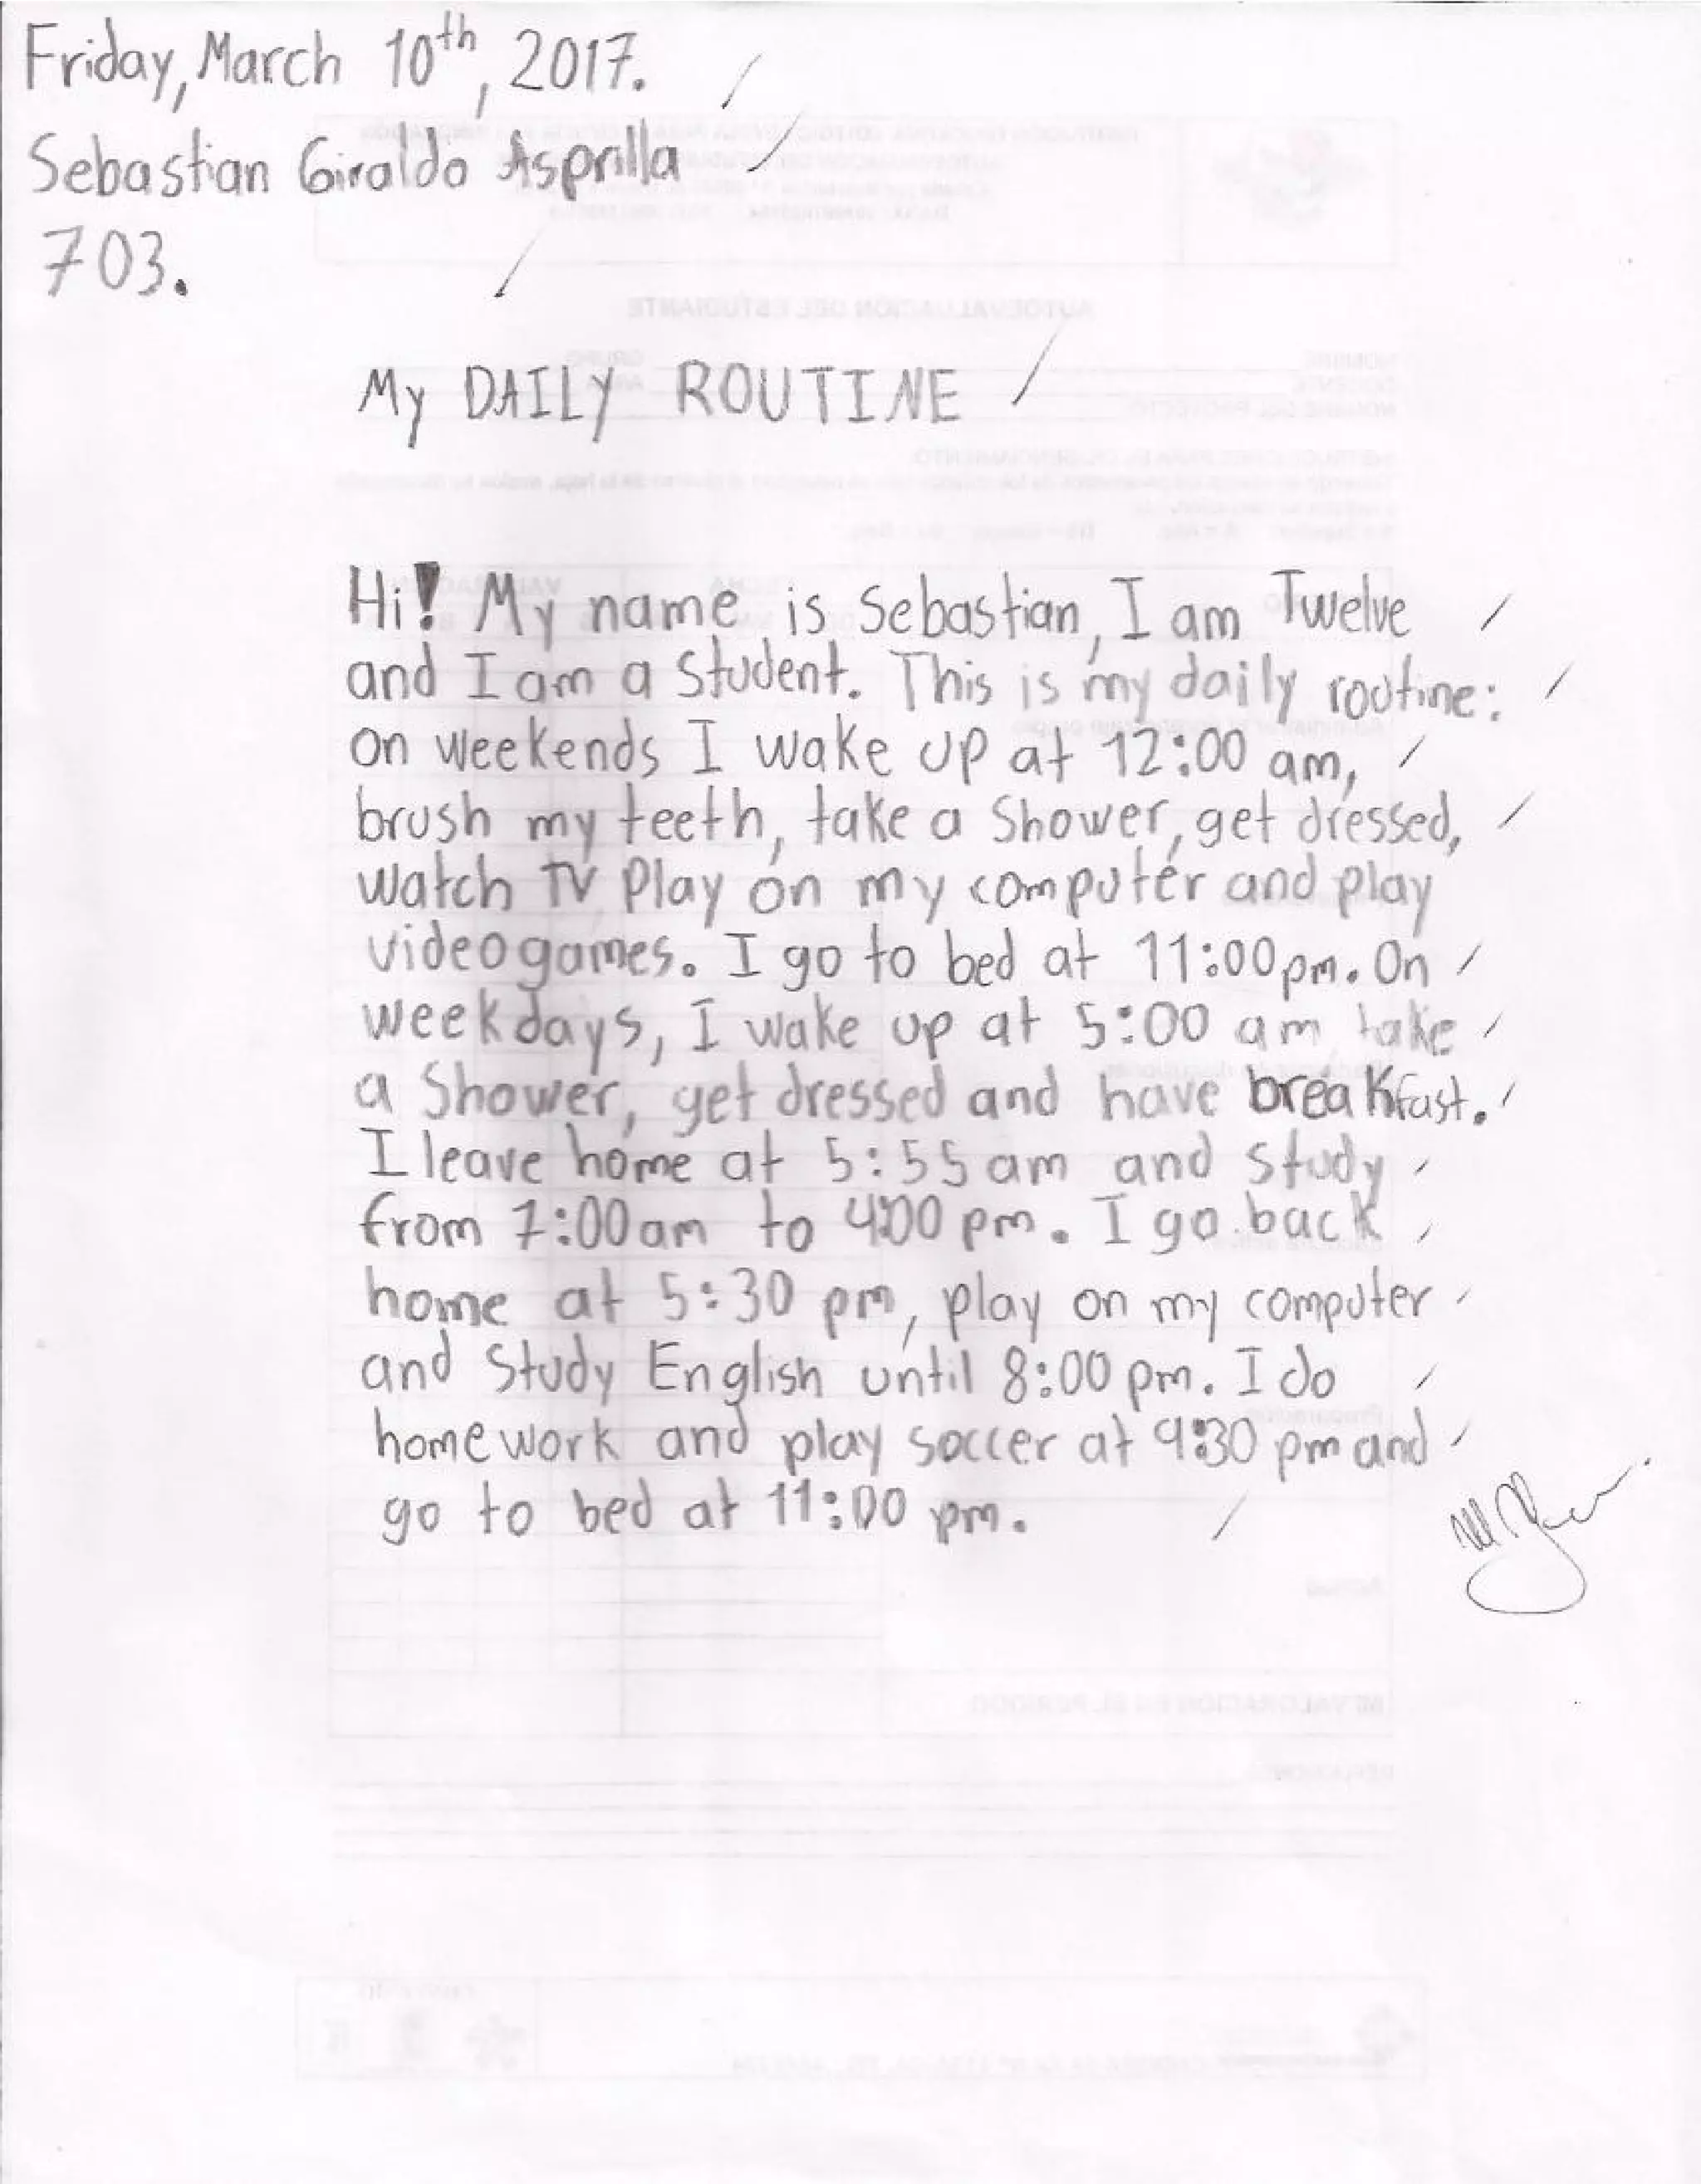 Friday, March 10th, 2017.
Sebastian Giraldo Asprilla
703.
My DAILY ROUTINE
Hi! My name is Sebastian, I am Twelve
and I am a student. This is my daily routine:
on weekends I wake up at 12:00 am,
brush my teeth, take a shower, get dressed,
watch TV play on my computer and play
videogames. I go to bed at 11:00 pm. On
weekdays, I wake up at 5:00 am take
a shower, get dressed and have breakfast.
I leave home at 5:55 am and study
from 7:00 am to 4:00 pm. I go back
home at 5:30 pm, play on my computer
and study English until 8:00 pm. I do
homework and play soccer at 9:30 pm and
go to bed at 11:00 pm.